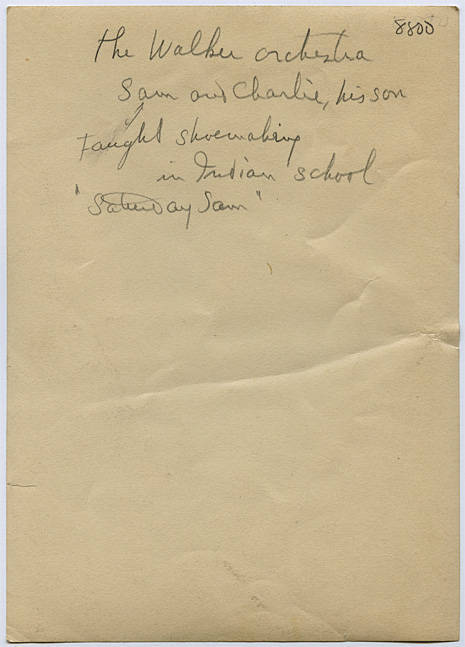 8800
The Walker orchestra
Sam and Charlie, his son
taught shoemaking
in Indian school
"Saturday Sam"